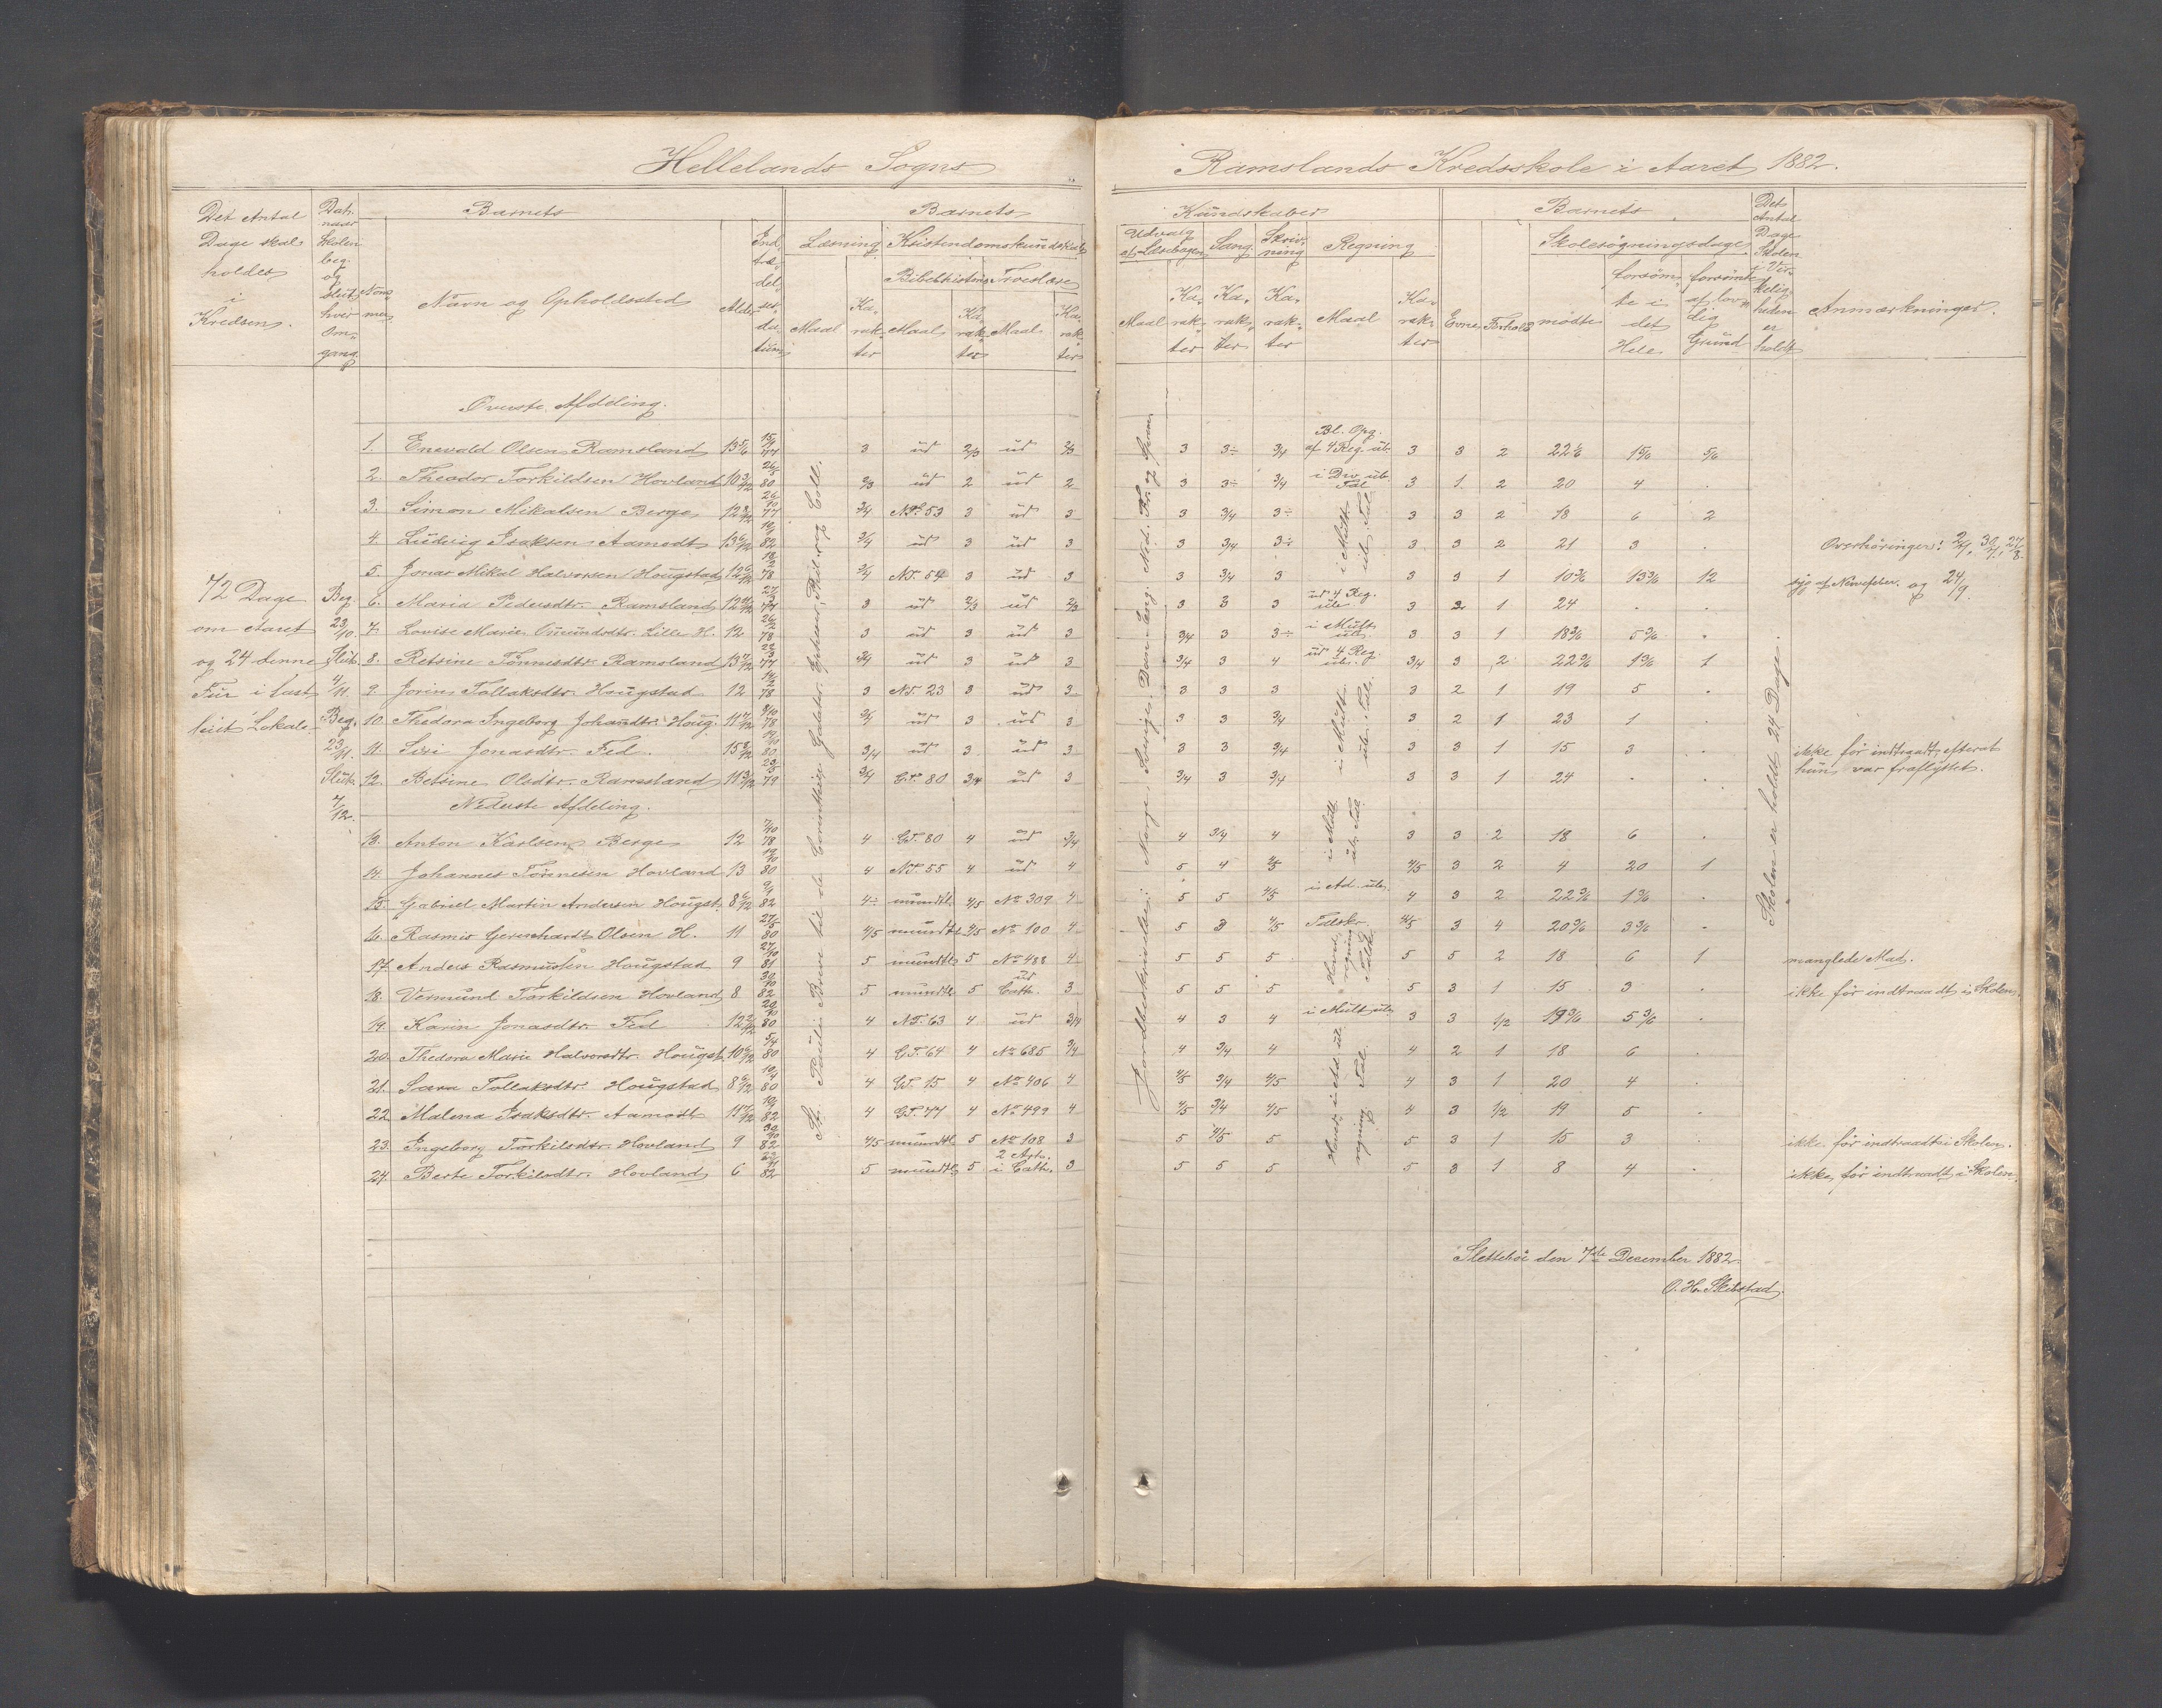 Hellelands Sogns
Ramslands Kredsskole i Aaret 1882.
Det Antal Dage skal holdes i Kredsen.
Dat. naar Skolen beg. og slut. hver Omgang.
Nummer
Barnets
Navn og Opholdssted
Alder
Indtrædelsesdatum
Barnets
Læsning
Kristendomskundskab
Bibelhistorie
Troeslære
Maal
Karakter
Maal
Karakter
Maal
Karakter
Kundskaber
Udvalg af Læsebogen
Sang
Skrivning
Regning
Maal
Karakter
Karakter
Karakter
Maal
Karakter
Barnets
Evner
Forhold
Skolesøgningsdage
mødte
forsømte i det Hele
forsømte af lovlig Grund
Det Antal Dage Skolen i Virkeligheden er holdt
Anmærkninger.
72 Dage om Aaret og 24 denne
Beg. 23/10. Slut. 4/11. Beg. 23/11. Slut. 7/12.
Øverste Afdeling.
1. Enevald Olsen Ramsland 13 5/6 15/4 77 3 ud 2/3 ud 2/3 3 3÷ 3/4 Bl. Opg. af 4 Reg. ub. 3 3 2 22 1/6 1 5/6 5/6
2. Theodor Torkildsen Hovland 10 3/12 26/5 80 2/3 ud 2 ud 2 3 3÷ 3/4 i Div. ub. Tal 3 1 2 20 4 .
3. Simon Mikalsen Berge 12 8/12 26/10 77 3/4 NT. 53 3 ud 3 3 3/4 3÷ 3 3 2 18 6 2
4. Ludvig Isaksen Aamodt 13 6/12 19/4 82 3/4 ud 3 ud 3 3 3/4 3÷ 3 3 2 21 3 . Overhøringer: 2/4, 30/7, 27/8.
5. Jonas Mikal Halvorsen Hougstad 12 6/12 18/2 78 3/4 NT. 54 3 ud 3 3 3/4 3 3 3 1 10 3/6 13 3/6 12 syg af Nervefeber. og 24/9.
6. Maria Pedersdtr. Ramsland 12 11/12 27/3 77 3 ud 2/3 ud 2/3 3 3 3 ud 4 Reg. ub. 3 2 1 24 . .
7. Lovise Marie Omundsdtr. Lille H. 12 26/2 78 3 ud 3 ud 3 3/4 3 3÷ i Mult. ub. 3 3 1 18 3/6 5 3/6 .
8. Betsine Tønnesdtr. Ramsland 13 7/12 22/3 77 3/4 ud 3 ud 3 3/4 3 4 ud 4 Reg. ub. 3/4 3 2 22 3/6 1 3/6 1
9. Jorine Tollaksdtr. Hougstad 12 14/2 78 3 NT. 23 3 ud 3 3 3 3 3 2 1 19 5 .
10. Thedora Ingeborg Johandtr. Houg. 11 7/12 9/10 78 3/4 ud 3 ud 3 3 3 3/4 3 2 1 23 1 .
11. Siri Jonasdtr. Fed. 15 8/12 19/10 80 3/4 ud 3 ud 3 3 3 3/4 3 3 1 15 3 . ikke før indtraadt, efterat hun var fraflyttet.
12. Betsine Olsdtr. Ramsland 11 3/12 23/5 79 3/4 GT. 80 3/4 ud 3 3/4 3 3/4 3 3 1 24 . .
Nederste Afdeling.
13. Anton Karlsen Berge 12 7/10 78 4 GT. 80 4 ud 3/4 4 3/4 4 3 3 2 18 6 .
14. Johannes Tønnesen Hovland 13 19/10 80 4 NT. 55 4 ud 4 5 4 4/5 4/5 3 2 4 20 1
15. Gabriel Martin Andersen Hougst. 8 6/12 9/4 82 4÷ mundtl. 4/5 No 309 4 5 5 4/5 i Ad. ub. 4 3 2 22 3/6 1 3/6 .
16. Rasmus Gerenhardt Olsen H. 11 27/5 80 4/5 mundtl. 4/5 No 100 4 5 3 4/5 Talskr. 4/5 3 4 20 3/6 3 3/6 .
17. Anders Rasmusen Hougstad 9 27/10 81 5 mundtl. 5 No 488 4 5 5 5 5 5 2 18 6 1 manglede Mad.
18. Vermund Torkildsen Hovland 8 30/10 82 5 mundtl. 5 ud Cath. 3 5 5 5 5 3 1 15 3 . ikke før indtraadt i Skolen.
19. Karin Jonasdtr. Fed 12 2/12 20/10 80 4 NT. 63 4 ud 3/4 4 3 4 i Mult. ub. 3 3 1/2 19 3/6 5 3/6 .
20. Thedora Marie Halvorsdtr. Hougst. 10 6/12 5/4 80 4 GT. 64 4 No 685 3/4 4 3/4 4 4 2 1 18 6 .
21. Sara Tollaksdtr. Hougstad 8 6/12 19/4 80 4 GT. 15 4 No 406 4 4/5 3/4 4/5 4 3 1 20 4 .
22. Malena Isaksdtr. Aamodt 11 7/12 19/4 82 4 GT. 47 4 No 499 4 4/5 3/4 4/5 4 3 1/2 19 5 .
23. Ingeborg Torkildsdtr. Hovland 9 30/10 82 4/5 mundtl. 5 No 108 3 5 4/5 5 5 3 1 15 3 . ikke før indtraadt i Skolen.
24. Berte Torkilsdtr. Hovland 6 23/11 82 5 mundtl. 5 2 Art. i Cath. 3 5 5 5 5 3 1 8 4 . ikke før indtraadt i Skolen.
St. Pauli Breve til de Corinthier, Galater, Epheser,
Jordbeskrivelse: Norge, Sverige, Dan.
i Mult. ub. Tal
i Mult. ub. Tal.
i Mult. ub. Tal
Skolen er holdt 24 Dage.
Slettebø den 7de December 1882.